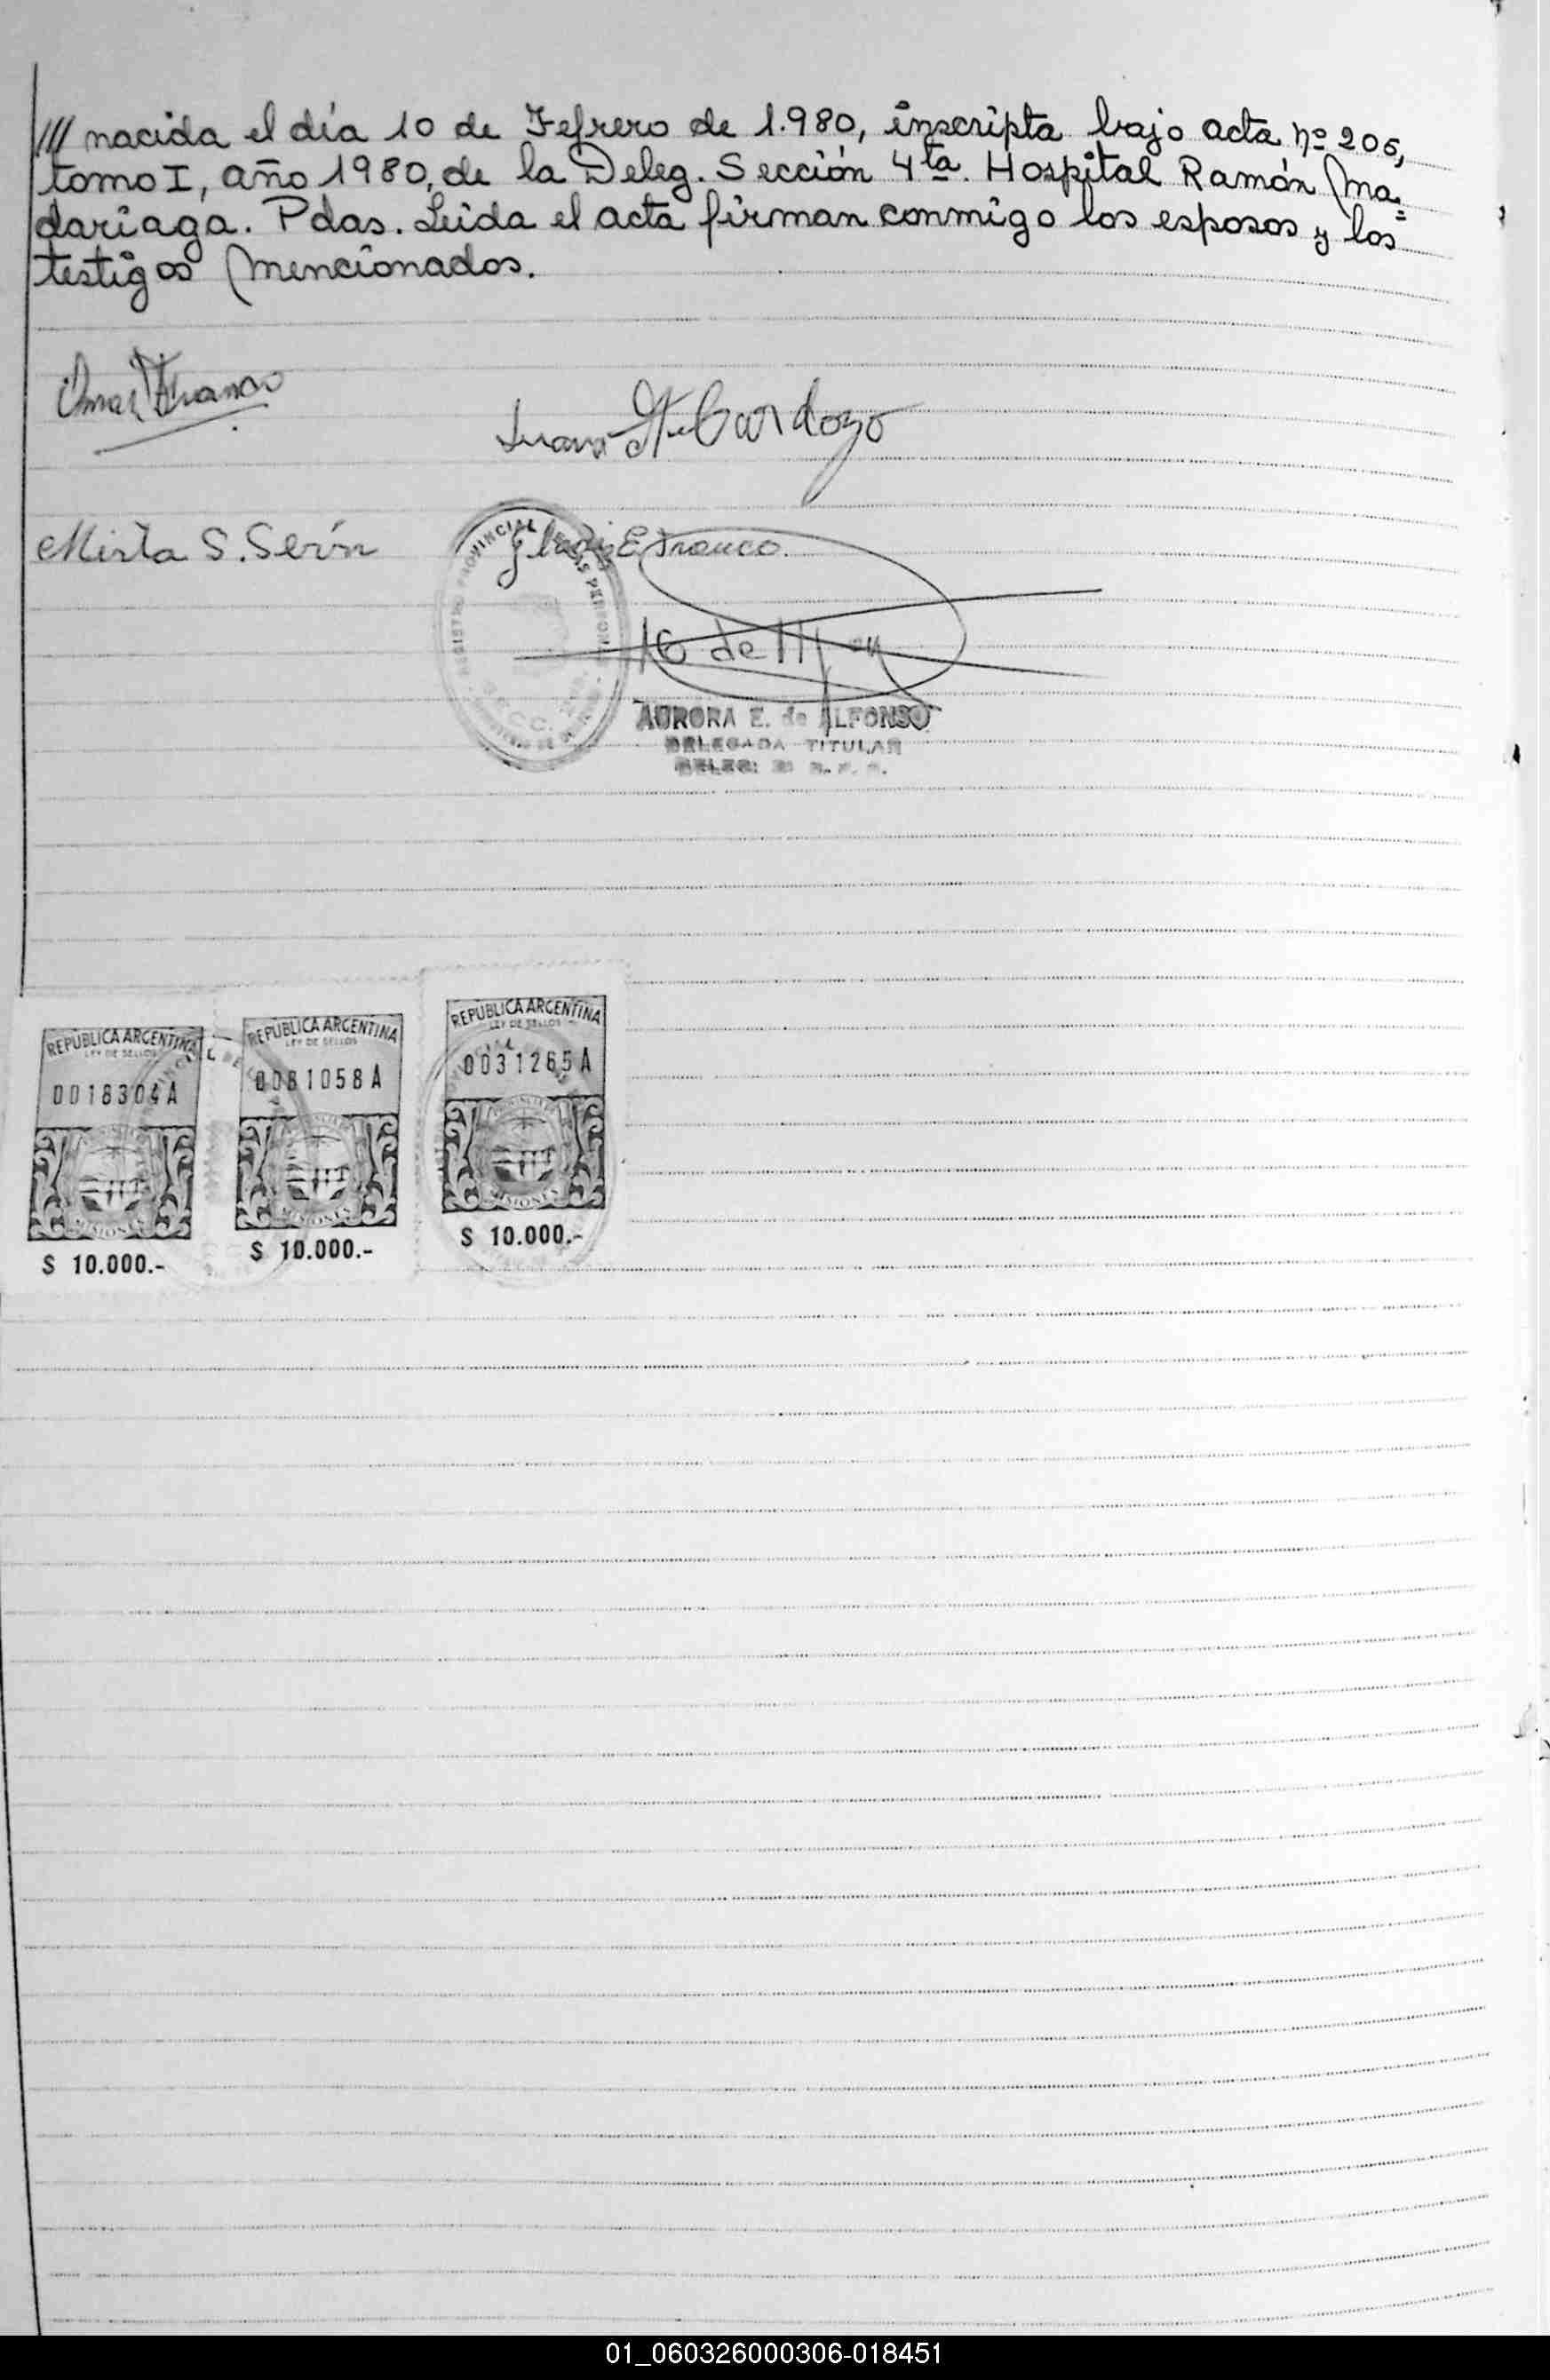 /// nacida el día 10 de Fefrero de 1.980, inscripta bajo acta nº 205,
tomo I, año 1980, de la Deleg. Sección 4ta. Hospital Ramón Ma=
dariaga. Pdas. Leída el acta firman conmigo los esposos y los
testigos mencionados.
Omar Franco
Juan Cardozo
Mirta S. Serín
Gladis E Franco.
REGISTRO PROVINCIAL DE LAS PERSONAS
AURORA E. de ALFONSO
DELEGADA TITULAR
REPUBLICA ARGENTINA
LEY DE SELLOS
0018304A
MISIONES
$ 10.000.-
REPUBLICA ARGENTINA
LEY DE SELLOS
0081058A
MISIONES
$ 10.000.-
REPUBLICA ARGENTINA
LEY DE SELLOS
0031265A
MISIONES
$ 10.000.-
01_060326000306-018451